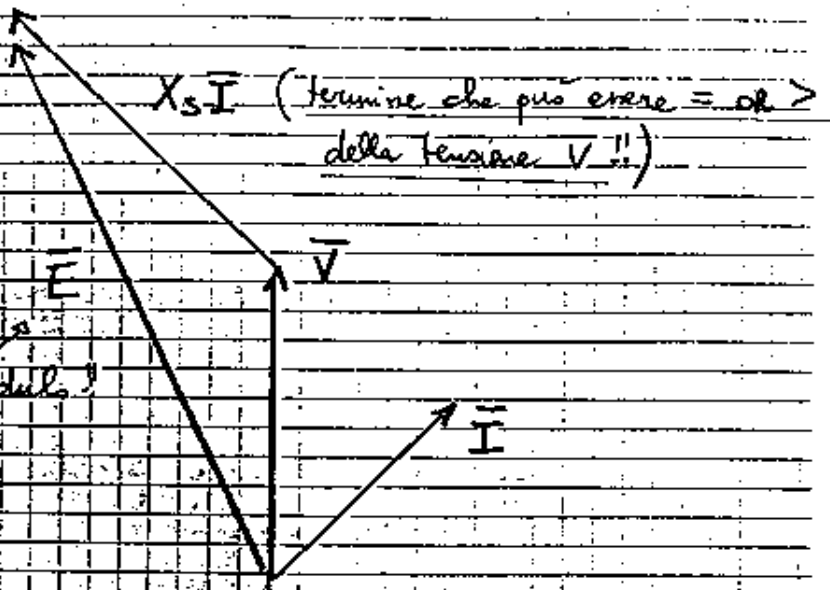 X_S I̅ (termine che può essere = o >
della tensione V !!)
E̅
V̅
I̅